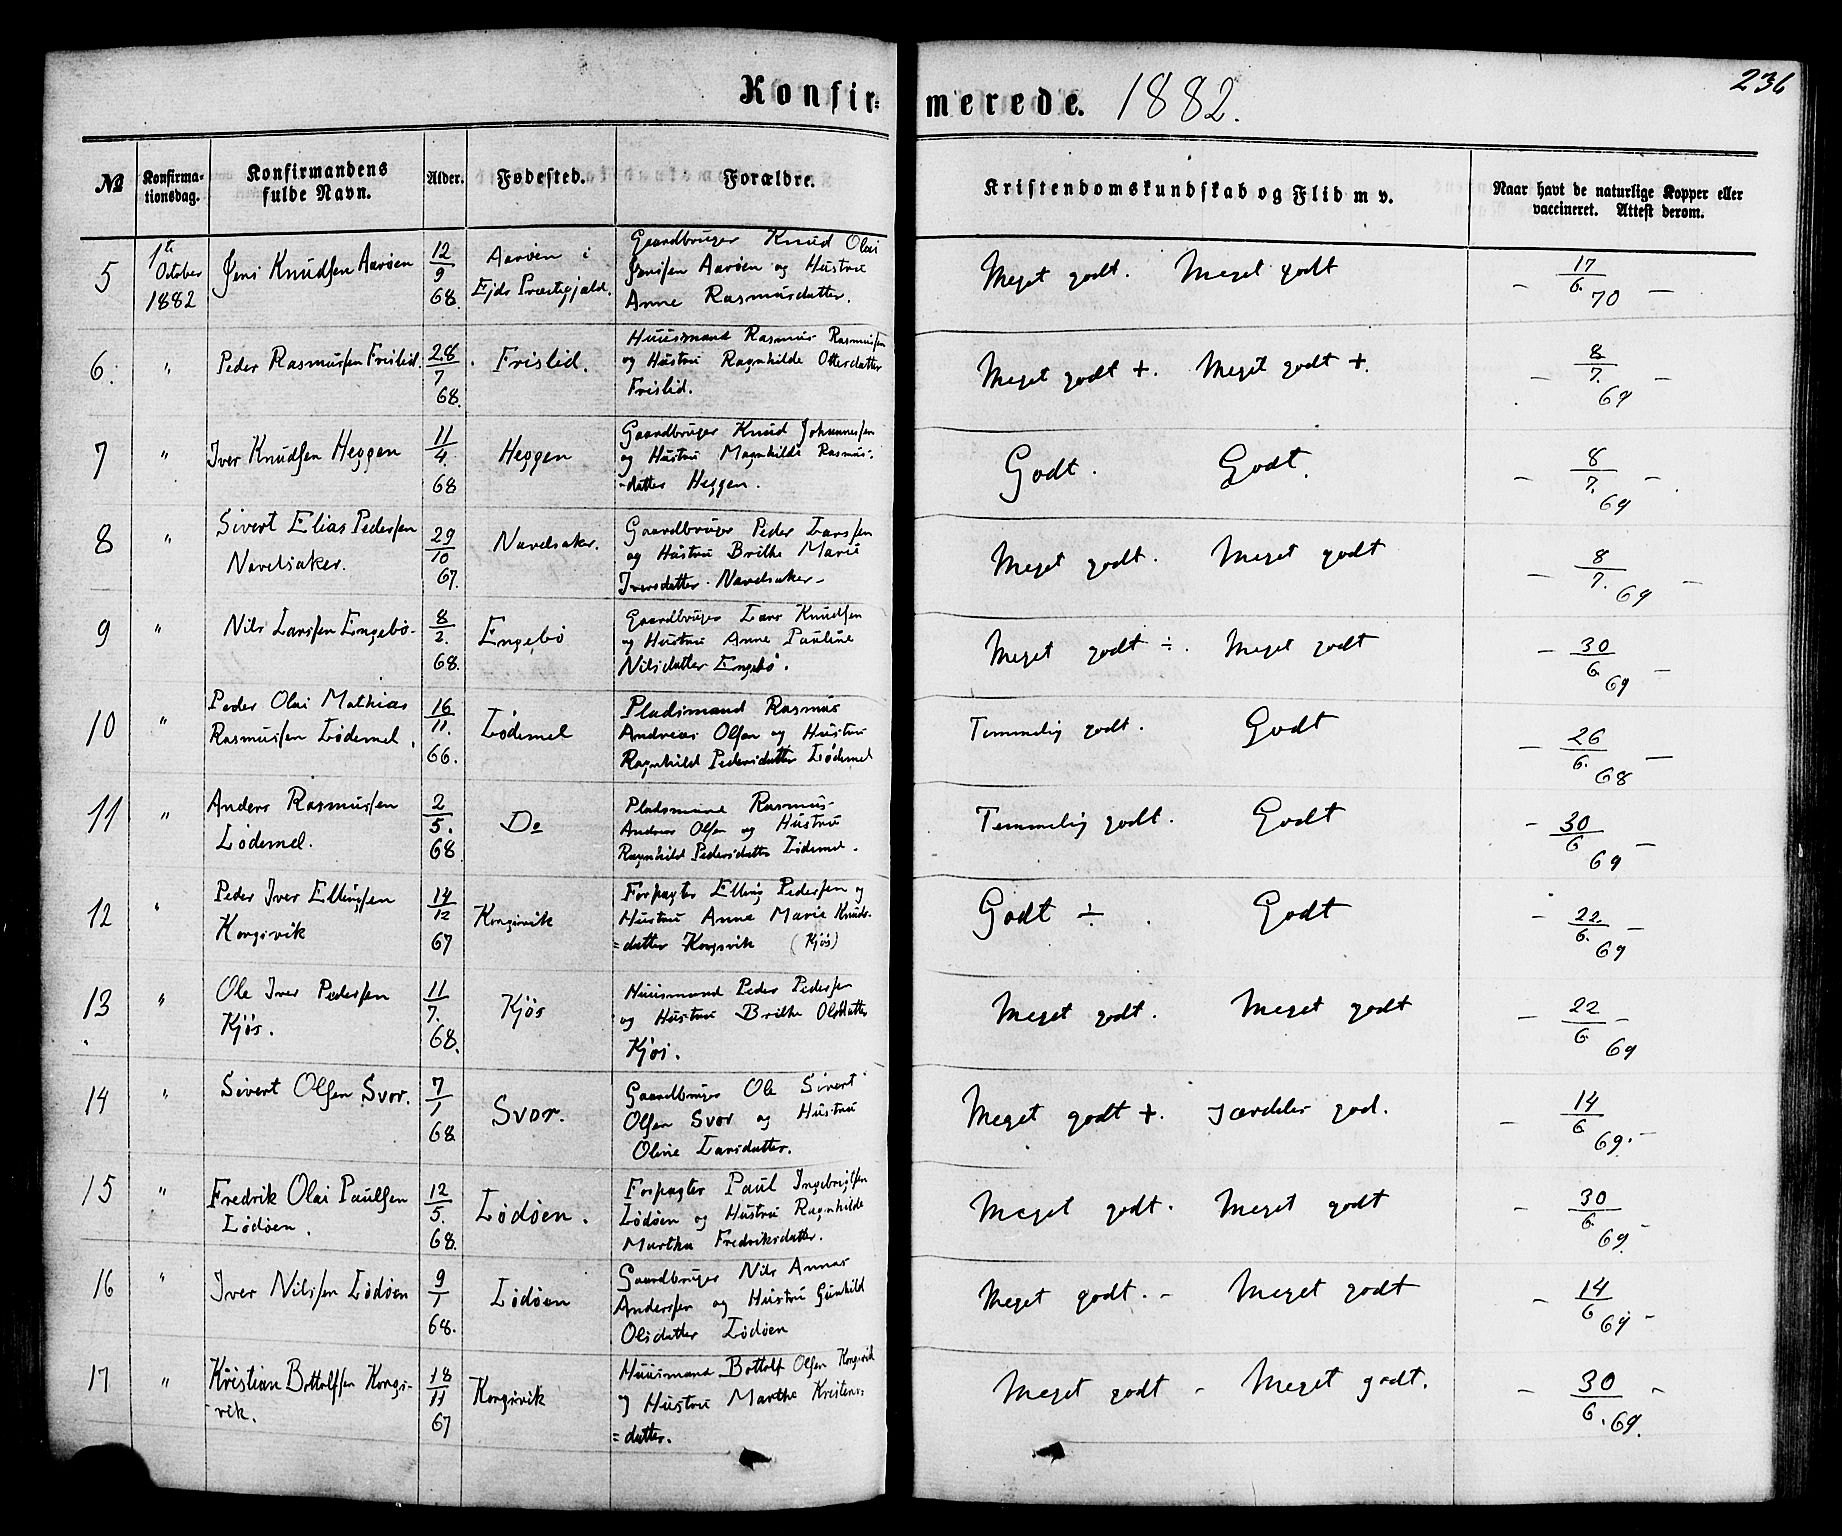 236
Konfir=
merede. 1882.
№
Konfirma-
tionsdag.
Konfirmandens
fulde Navn.
Alder.
Fødested.
Forældre.
Kristendomskundskab og Flid m v.
Naar havt de naturlige Kopper eller
vaccineret. Attest derom.
5
1te
October
1882
Jens Knudsen Aarøen
12
9
68.
Aarøen i
Ejds Præstegjæld.
Gaardbruger Knud Olai
Jensen Aarøen og Hustru
Anne Rasmusdatter.
Meget godt. Meget godt
– 17
6. 70 –
6. " Peder Rasmussen Frislid.
28
7
68.
Frislid.
Huusmand Rasmus Rasmussen
og Hustru Ragnhilde Ottersdatter
Frislid.
Meget godt +. Meget godt +.
– 8
7. 69 –
7 " Iver Knudsen Heggen
11
4.
68
Heggen
Gaardbruger Knud Johannessen
og Hustru Magnhilde Rasmus-
-datter Heggen.
Godt. Godt.
– 8
7. 69 –
8 " Sivert Elias Pedersen
Navelsaker.
29
10
67.
Navelsaker.
Gaardbruger Peder Larssen
og Hustru Brithe Marie
Iversdatter Navelsaker –
Meget godt. Meget godt
– 8
7. 69 –
9 " Nils Larssen Engebø.
8
2.
68.
Engebø
Gaardbruger Lars Knudsen
og Hustru Anne Pauline
Nilsdatter Engebø.
Meget godt ÷. Meget godt
– 30
6. 69 –
10 " Peder Olai Mathias
Rasmussen Lødemel.
16
11.
66.
Lødemel
Pladsmand Rasmus
Andreas Olsen og Hustru
Ragnhild Pedersdatter Lødemel
Temmelig godt. Godt
– 26
6. 68 –
11 " Anders Rasmussen
Lødemel.
2
5.
68.
Do
Pladsmand Rasmus
Andreas Olsen og Hustru
Ragnhild Pedersdatter Lødemel.
Temmelig godt. Godt
– 30
6 69 –
12 " Peder Iver Ellingsen
Kongsvik
14
12
67
Kongsvik
Forpagter Elling Pedersen og
Hustru Anne Marie Knuds-
=datter Kongsvik (Kjøs)
Godt ÷. Godt
– 22
6. 69 –
13 " Ole Iver Pedersen
Kjøs.
11
7.
68.
Kjøs
Huusmand Peder Pedersen
og Hustru Brithe Olsdatter
Kjøs.
Meget godt. Meget godt
– 22
6 69 –
14 " Sivert Olsen Svor.
7
1
68
Svor.
Gaardbruger Ole Sivert
Olsen Svor og Hustru
Oline Larsdatter.
Meget godt +. Særdeles god.
– 14
6 69. –
15 " Fredrik Olai Paulsen
Lødøen.
12
5.
68.
Lødøen.
Forpagter Paul Ingebrigtsen
Lødøen og Hustru Ragnhilde
Martha Fredriksdatter.
Meget godt. Meget godt
– 30
6. 69. –
16 " Iver Nilssen Lødøen
9
1
68.
Lødøen
Gaardbruger Nils Annas
Anderssen og Hustru Gunhild
Olsdatter Lødøen
Meget godt. – Meget godt
– 14
6 69 –
17 " Kristian Bottolfsen Kongs-
vik.
18
11
67
Kongsvik
Huusmand Bottolf Olsen Kongsvik
og Hustru Marthe Kristens-
=datter.
Meget godt – Meget godt.
– 30
6. 69. –